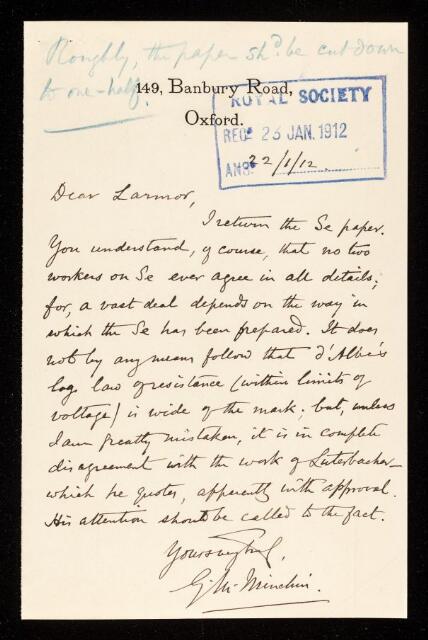 Roughly, the paper shd. be cut down
to one-half.
149, Banbury Road,
Oxford.
ROYAL SOCIETY
REC. 23 JAN. 1912
ANS. 22/1/12.
Dear Larmor,
I return the Se paper.
You understand, of course, that no two
workers on Se ever agree in all details;
for, a vast deal depends on the way in
which the Se has been prepared. It does
not by any means follow that d'Albe's
log. law of resistance (within limits of
voltage) is wide of the mark; but, unless
I am greatly mistaken, it is in complete
disagreement with the work of Luterbacher
which he quotes, apparently with approval.
His attention should be called to the fact.
Yours very truly,
G. M. Minchin.